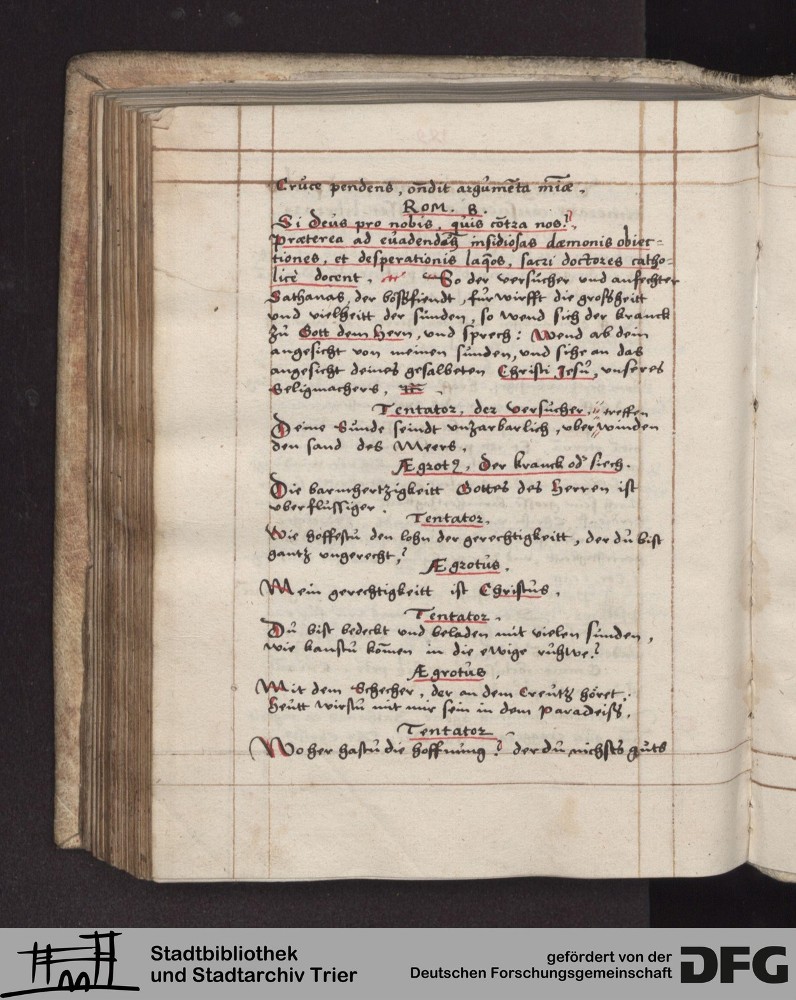 Cruce pendens, oñdit argumēta miāe.
ROM. 8.
Si Deus pro nobis, quis cōtra nos?
Præterea ad euadendas insidiosas dæmonis obiec=
tiones, et desperationis laqȩos, sacri doctores catho=
licè docent. So der versucher vnd anfechter
Sathanas, der bößfiendt, fürwirfft die großheitt
vnd vielheitt der sünden, so wend sich der kranck
zü Gott dem Hern, vnd sprech: Wend ab dein
angesicht von meinen sünden, vnd sihe an das
angesicht deines gesalbeten Christi Jesu, vnseres
Seligmachers,
Tentator, der versücher. treffen
Deine Sünde seindt vnzarbarlich, vberwinden
den sand des Meers.
Ægrot9, Der kranck od' siech.
Die barmhertzigkeitt Gottes des Herren ist
vberflüssiger.
Tentator.
Wie hoffestu den lohn der gerechtigkeitt, der du bist
gantz vngerecht?
Ægrotus.
Mein gerechtigkeitt ist Christus.
Tentator.
Du bist bedeckt vnd beladen mit vielen sünden,
wie kanstu kom̄en in die ewige rühwe?
Ægrotus.
Mit dem Schecher, der an dem Creutz höret:
Heütt wirstu mit mir sein in dem Paradeiß.
Tentator
Woher hastu die hoffnung? der du nichsts guts
Stadtbibliothek
und Stadtarchiv Trier
gefördert von der
Deutschen Forschungsgemeinschaft
DFG